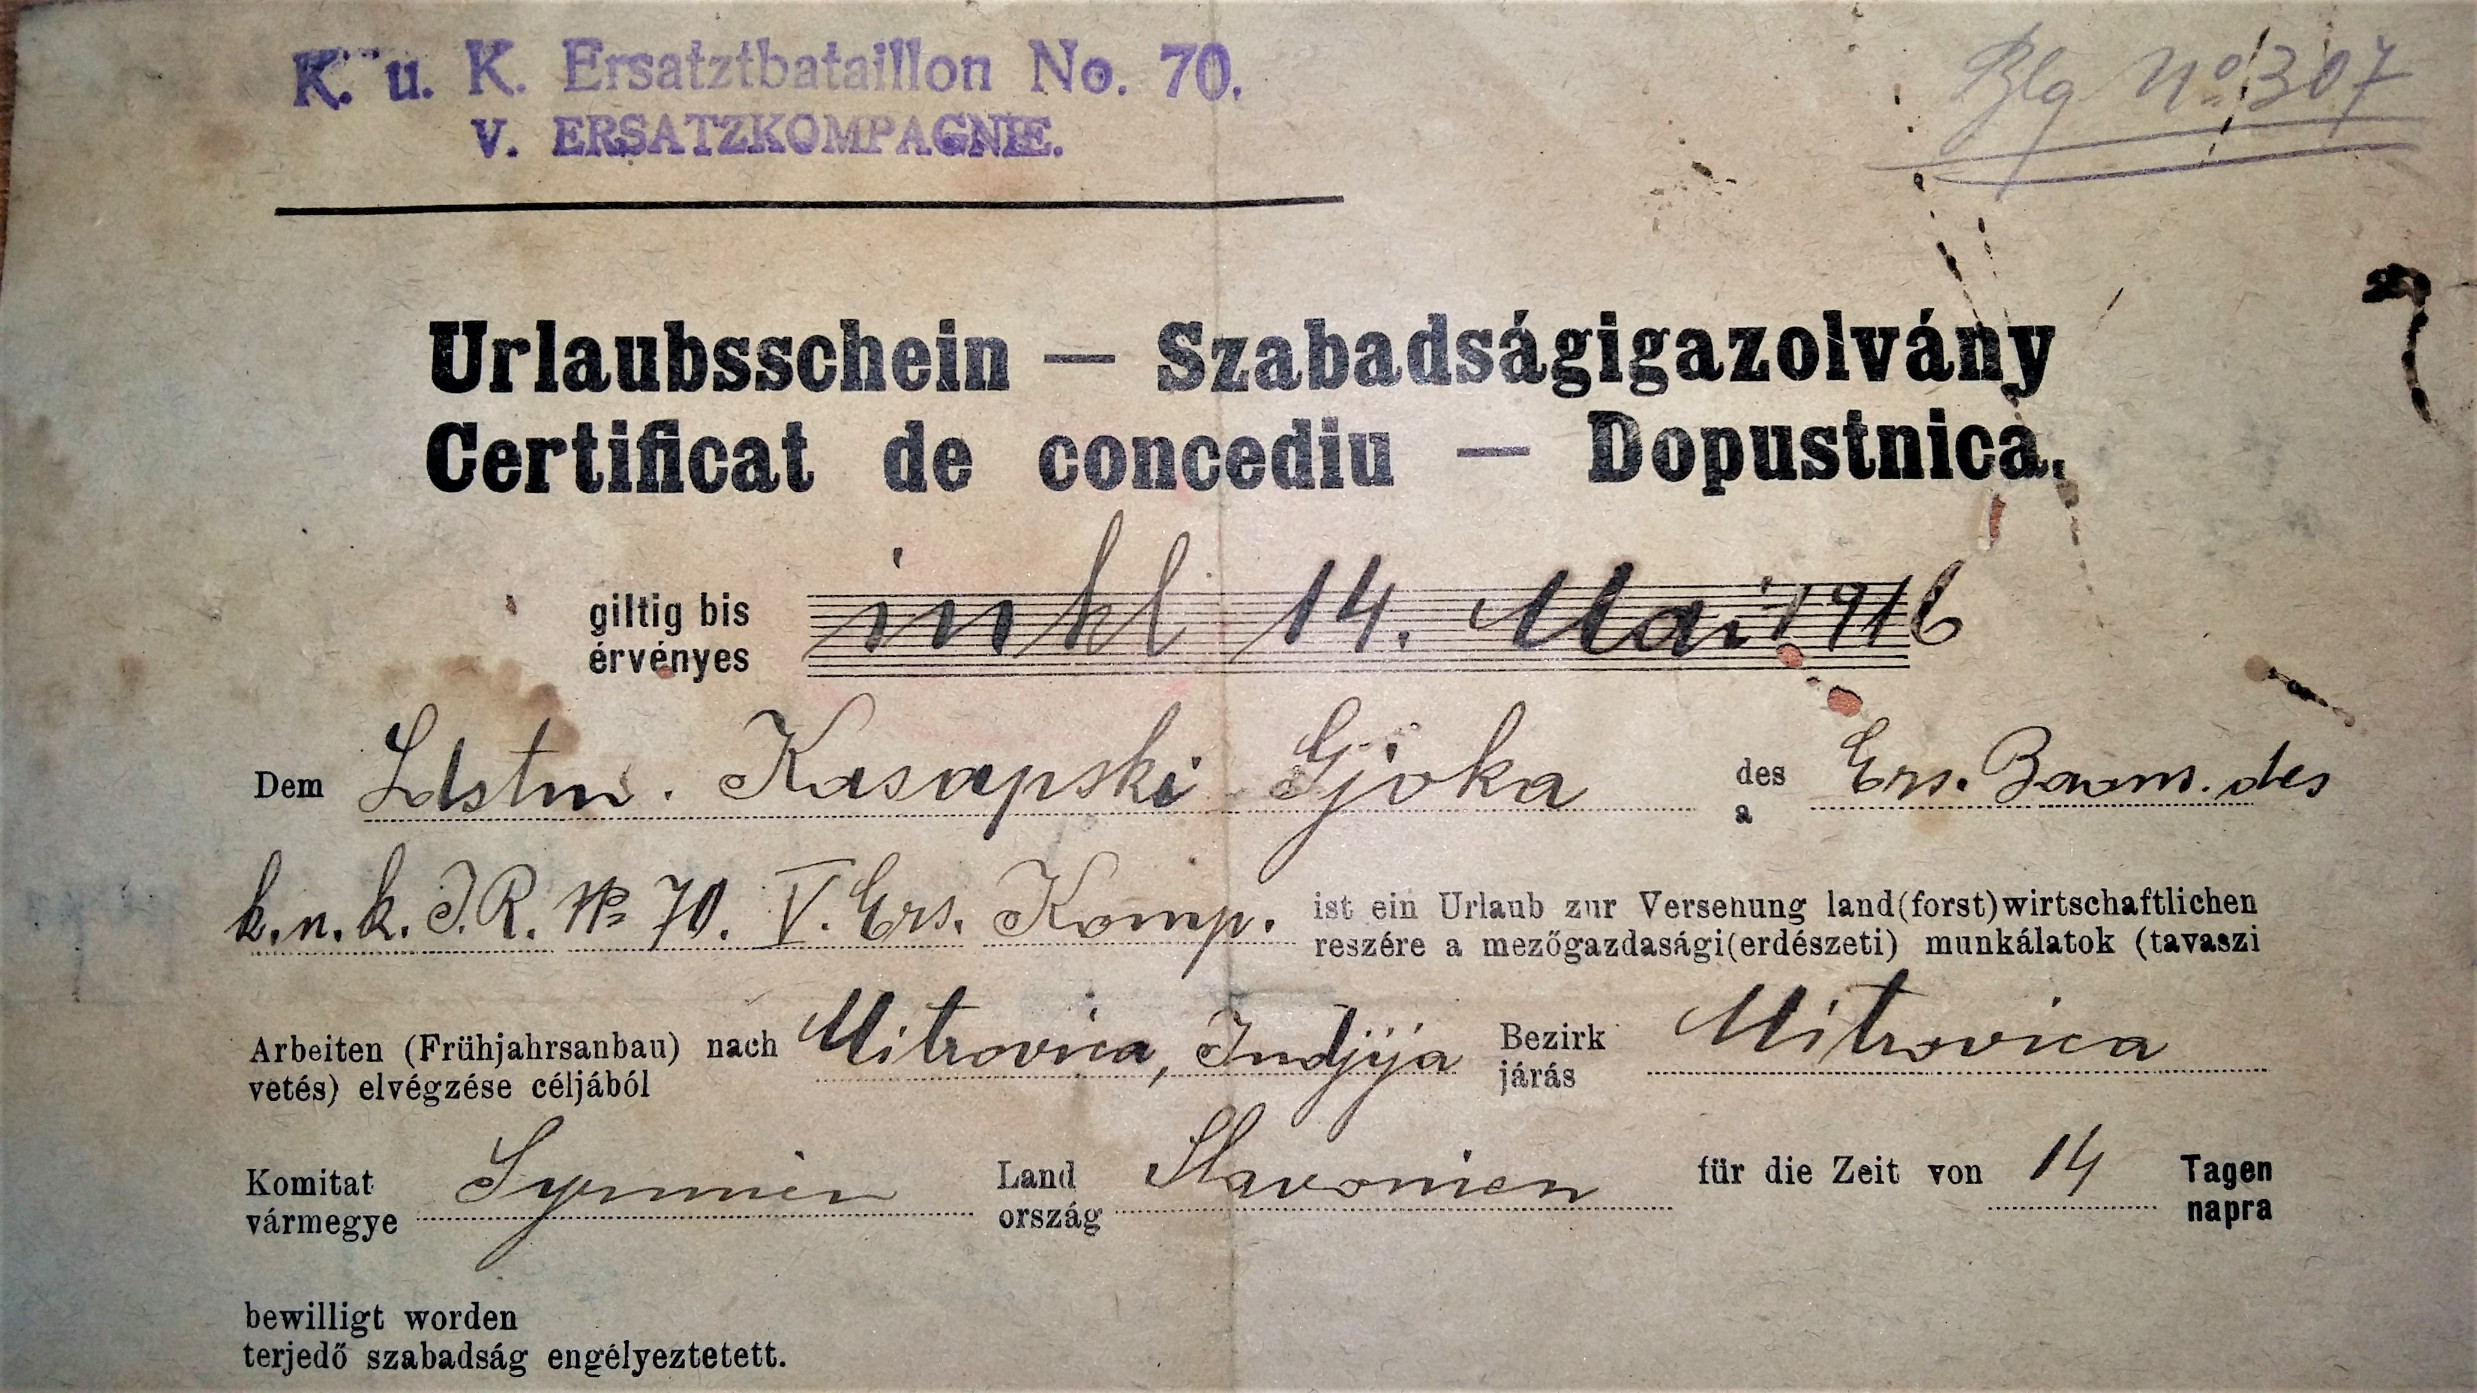 K. u. K. Ersatztbataillon No. 70.
V. ERSATZKOMPAGNIE.
Blg No 307
Urlaubsschein — Szabadságigazolvány
Certificat de concediu — Dopustnica.
giltig bis
érvényes
inkl 14. Mai 1916
Dem Ldstm. Kasapski Gjoka des
a
Ers. Baons. des
k. u. k. I. R. No 70. V. Ers. Komp. ist ein Urlaub zur Versehung land(forst)wirtschaftlichen
reszére a mezőgazdasági(erdészeti) munkálatok (tavaszi
Arbeiten (Frühjahrsanbau) nach Mitrovica, Indjija Bezirk Mitrovica
vetés) elvégzése céljából járás
Komitat Syrmien Land Slavonien für die Zeit von 14 Tagen
vármegye ország napra
bewilligt worden
terjedő szabadság engélyeztetett.